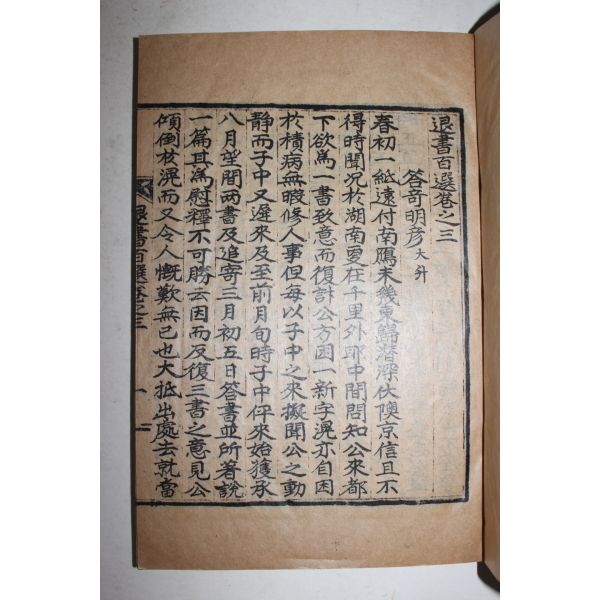 退書百選卷之三
答奇明彦 大升
春初一紙遠付南鴈未幾東歸潜深伏隩京信且不
得時聞况於湖南爰在千里外耶中間問知公來都
下欲爲一書致意而復計公方困一新字滉亦自困
於積病無暇修人事但每以子中之來擬聞公之動
静而子中又遲來及至前月旬時子中伻來始獲承
八月望間兩書及追寄三月初五日答書並所著說
一篇其爲慰釋不可勝云因而反復三書之意見公
傾倒於滉而又令人慨歎無已也大抵出處去就當
退書百選卷之三 一